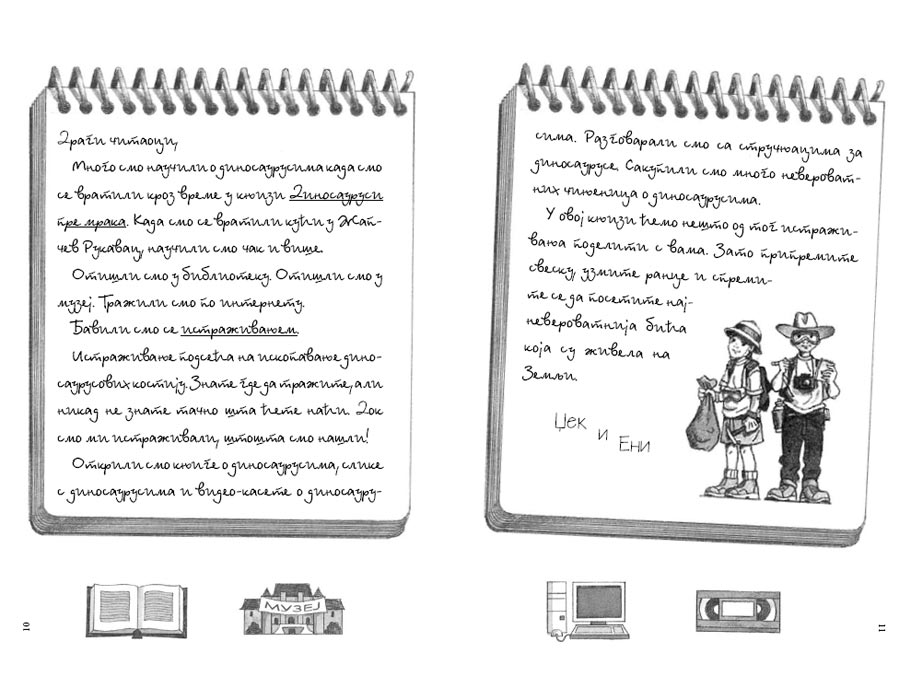 Драги читаоци,
Много смо научили о диносаурусима када смо
се вратили кроз време у књизи Диносауруси
пре мрака. Када смо се вратили кући у Жап-
чев Рукавац, научили смо чак и више.
Отишли смо у библиотеку. Отишли смо у
музеј. Тражили смо по интернету.
Бавили смо се истраживањем.
Истраживање подсећа на ископавање дино-
саурусових костију. Знате где да тражите, али
никад не знате тачно шта ћете наћи. Док
смо ми истраживали, штошта смо нашли!
Открили смо књиге о диносаурусима, слике
с диносаурусима и видео-касете о диносауру-
МУЗЕЈ
10
сима. Разговарали смо са стручњацима за
диносаурусе. Сакупили смо много невероват-
них чињеница о диносаурусима.
У овој књизи ћемо нешто од тог истражи-
вања поделити с вама. Зато припремите
свеску, узмите ранце и спреми-
те се да посетите нај-
невероватнија бића
која су живела на
Земљи.
Џек
и
Ени
11